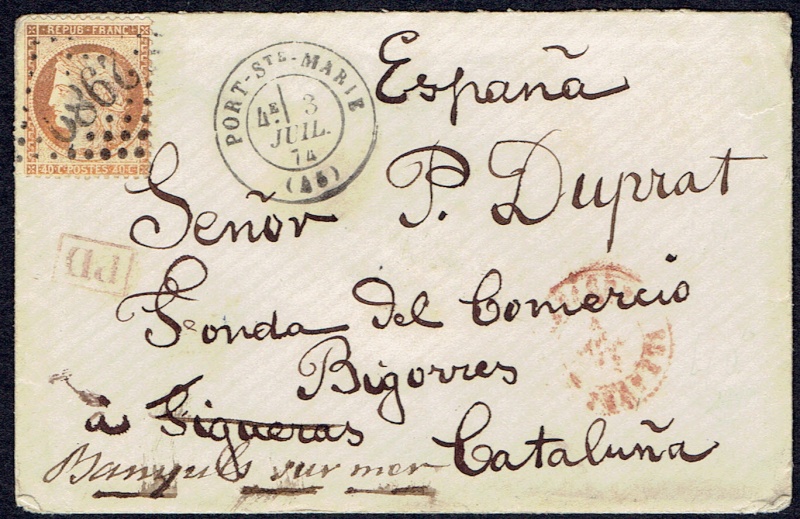 REPUB · FRANC ·
2980
40·C·POSTES·40·C
PORT-STE-MARIE
4E 3
JUIL.
74
(45)
España
Señor P. Duprat
PD
Fonda del Comercio
Bigorres
à Figueras
Cataluña
Banyuls sur mer